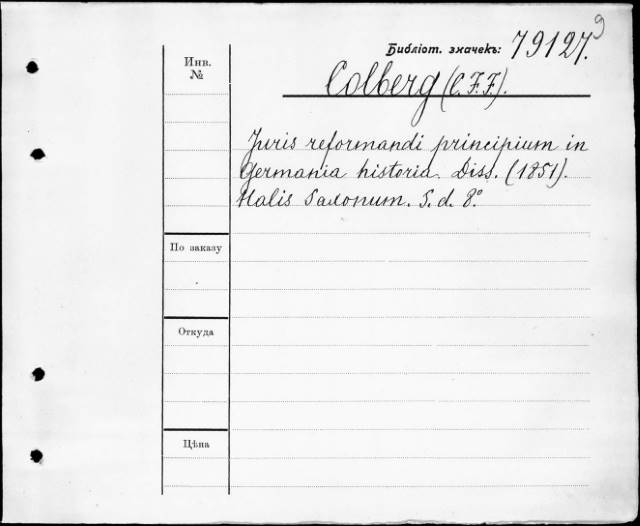 9
Библіот. значекъ: 79127.
Инв.
№
Colberg (C. F. F.).
Juris reformandi principium in
Germania historia. Diss. (1851).
Halis Saxonum. S. d. 8º
По заказу
Откуда
Цѣна